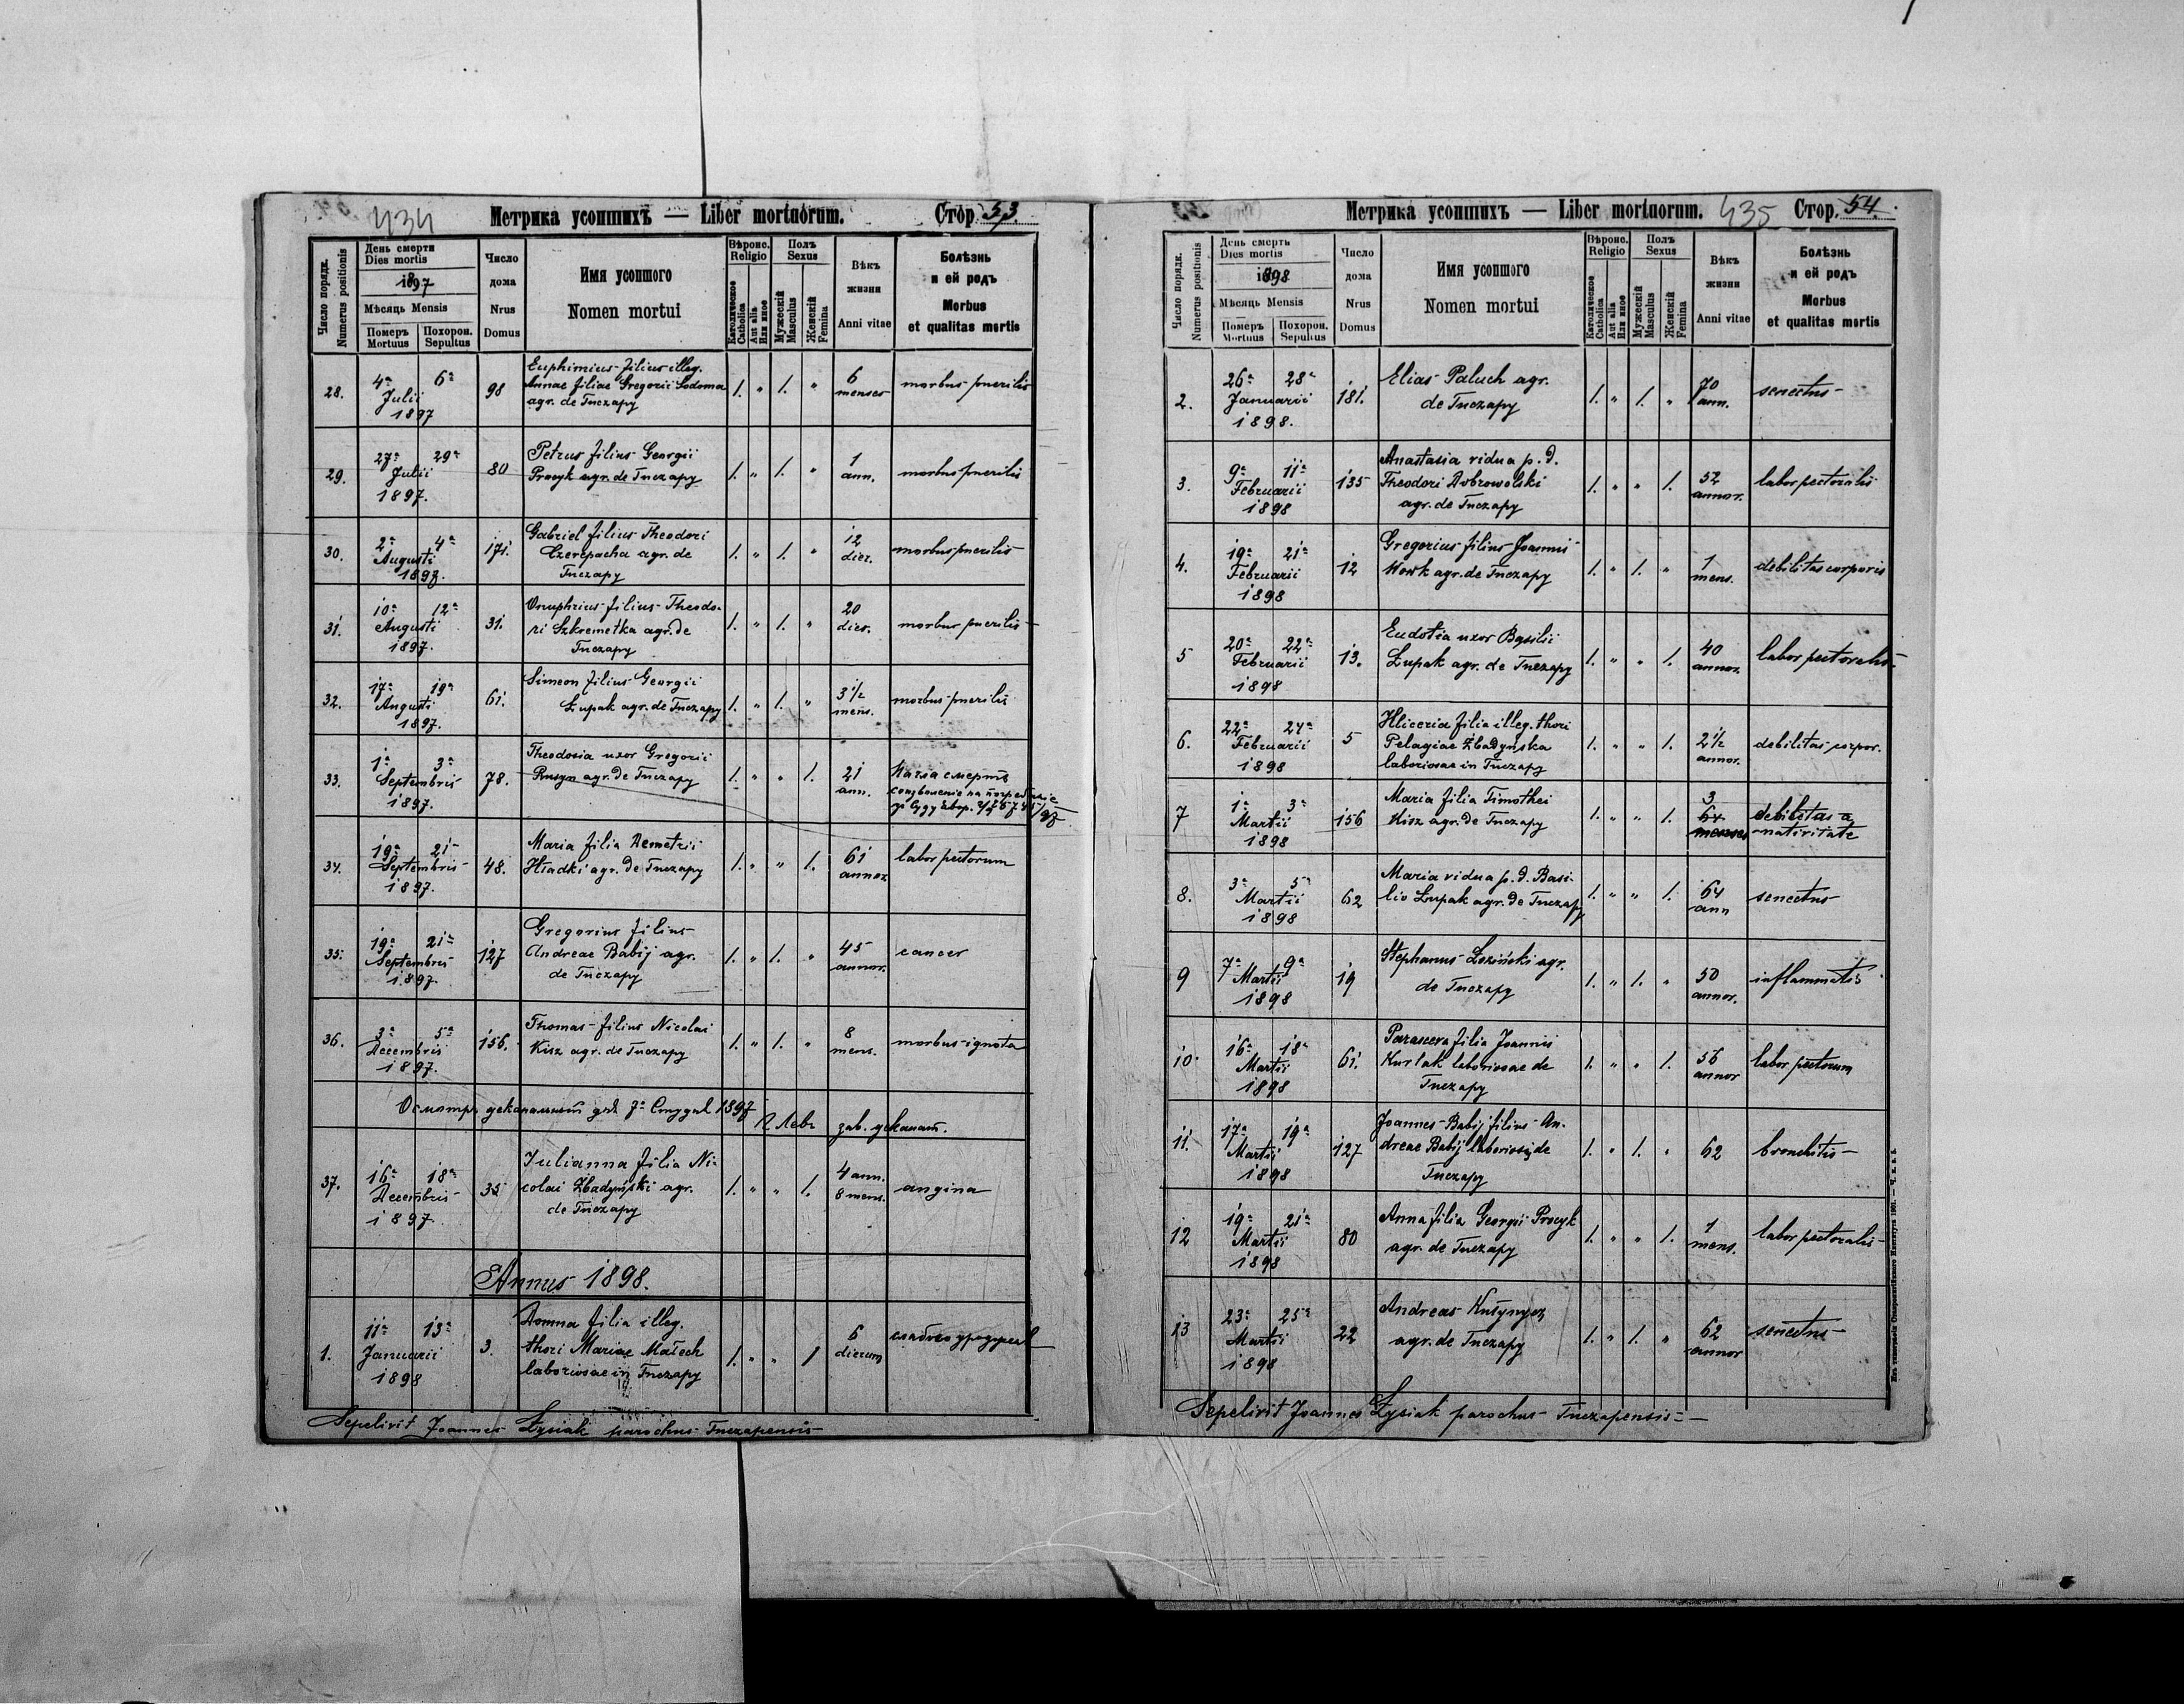 434
Метрика усопшихъ — Liber mortuorum. Стор. 53.
Число порядк. Numerus positionis
День смерти Dies mortis
1897
Мѣсяць Mensis
Померъ Mortuus
Похорон. Sepultus
Число дома Nrus Domus
Имя усопшого
Nomen mortui
Вѣроис. Religio
Католическое Catholica
Aut alia Или иное
Полъ Sexus
Мужескій Masculus
Женскій Femina
Вѣкъ жизни
Anni vitae
Болѣзнь и ей родъ
Morbus et qualitas mortis
28. 4a 6a Julii 1897 98
Euphimius filius illeg.
Annae filiae Gregorii Sodoma
agr. de Tuczapy
1. " 1. " 6 menses morbus puerilis
29. 27a 29a Julii 1897. 80
Petrus filius Georgii
Procyk agr. de Tuczapy
1. " 1. " 1 ann. morbus puerilis
30. 2a 4a Augusti 1897. 171.
Gabriel filius Theodori
Czerepacha agr. de
Tuczapy
1. " 1. " 12 dier. morbus puerilis
31. 10a 12a Augusti 1897. 31.
Onuphrius filius Theodo-
ri Szkremetka agr. de
Tuczapy
1. " 1. " 20 dier. morbus puerilis
32. 17a 19a Augusti 1897. 61.
Simeon filius Georgii
Łupak agr. de Tuczapy
1. " 1. " 3 1/2 mens. morbus puerilis
33. 1a 3a Septembris 1897. 78.
Theodosia uxor Gregorii
Rusyn agr. de Tuczapy
1. " " 1. 21 ann. Нагла смерть
34. 19a 21a Septembris 1897. 48.
Maria filia Demetrii
Hładki agr. de Tuczapy
1. " " 1. 61 annor labor pectorum
35. 19a 21a Septembris 1897. 127
Gregorius filius
Andreae Babij agr.
de Tuczapy
1. " 1. " 45 annor. cancer
36. 3a 5a Decembris 1897. 156.
Thomas filius Nicolai
Kisz agr. de Tuczapy
1. " 1. " 8 mens. morbus ignota
1897
37. 16a 18a Decembris 1897. 35
Julianna filia Ni-
colai Zbadyński agr.
de Tuczapy
1. " " 1. 4 ann. 8 mens. angina
Annus 1898.
1. 11a 13a Januarii 1898 3.
Domna filia illeg.
thori Mariae Małech
laboriosae in Tuczapy
1. " " 1 6 dierum
Sepelivit Joannes Łysiak parochus Tuczapensis
Метрика усопшихъ — Liber mortuorum. 435 Стор. 54.
Число порядк. Numerus positionis
День смерть Dies mortis
1898
Мѣсяць Mensis
Померъ Mortuus
Похорон. Sepultus
Число дома Nrus Domus
Имя усопшого
Nomen mortui
Вѣроис. Religio
Католическое Catholica
Aut alia Или иное
Полъ Sexus
Мужескій Masculus
Женскій Femina
Вѣкъ жизни
Anni vitae
Болѣзнь и ей родъ
Morbus et qualitas mortis
2. 26a 28a Januarii 1898. 181.
Elias Paluch agr.
de Tuczapy
1. " 1. " 70 ann. senectus
3. 9a 11a Februarii 1898 135
Anastasia vidua p. d.
Theodori Dobrowolski
agr. de Tuczapy
1. " " 1. 52 annor. labor pectoralis
4. 19a 21a Februarii 1898 12
Gregorius filius Joannis
Wowk agr. de Tuczapy
1. " 1. " 1 mens. debilitas corporis
5 20a 22a Februarii 1898 13.
Eudotia uxor Basilii
Łupak agr. de Tuczapy
1. " " 1. 40 annor. labor pectoralis
6. 22a 24a Februarii 1898 5
Hliceria filia illeg. thori
Pelagiae Zbadyńska
laboriosae in Tuczapy
1. " " 1. 2 1/2 annor. debilitas corpor.
7 1a 3a Martii 1898 156
Maria filia Timothei
Kisz agr. de Tuczapy
1. " " 1. 3 64 menses debilitas a nativitate
8. 3a 5a Martii 1898 62
Maria vidua p. d. Basi-
lio Łupak agr. de Tuczapy
1. " " 1. 64 ann senectus
9 7a 9a Martii 1898 19
Stephanus Łoziński agr.
de Tuczapy
1. " 1. " 50 annor. inflammatio
10 16a 18a Martii 1898 61.
Parasceva filia Joannis
Kurlak laboriosae de
Tuczapy
1. " " 1. 56 annor labor pectorum
11. 17a 19a Martii 1898 127
Joannes Babij filius An-
dreae Babij laboriosi de
Tuczapy
1. " 1. " 62 bronchitis
12 19a 21a Martii 1898 80
Anna filia Georgii Procyk
agr. de Tuczapy
1. " " 1. 1 mens. labor pectoralis
13 23a 25a Martii 1898 22
Andreas
agr. de Tuczapy
1. " 1. " 62 annor senectus
Sepelivit Joannes Łysiak parochus Tuczapensis